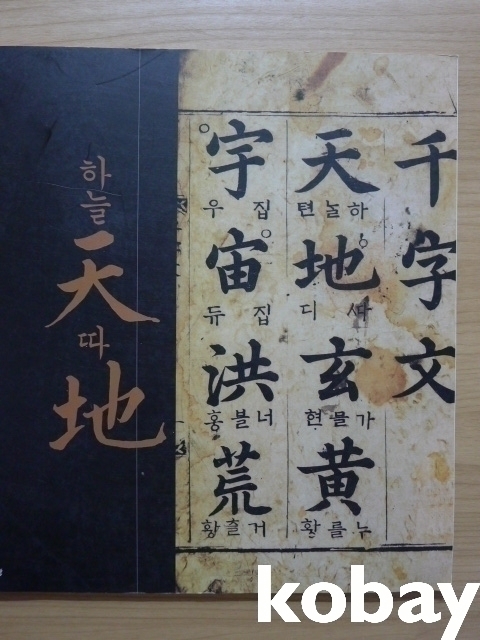 하늘
天
따
地
千字文
天
하늘텬
地
ᄯᅡ디
玄
가믈현
黄
누를황
宇
집우
宙
집듀
洪
너블홍
荒
거츨황
kobay